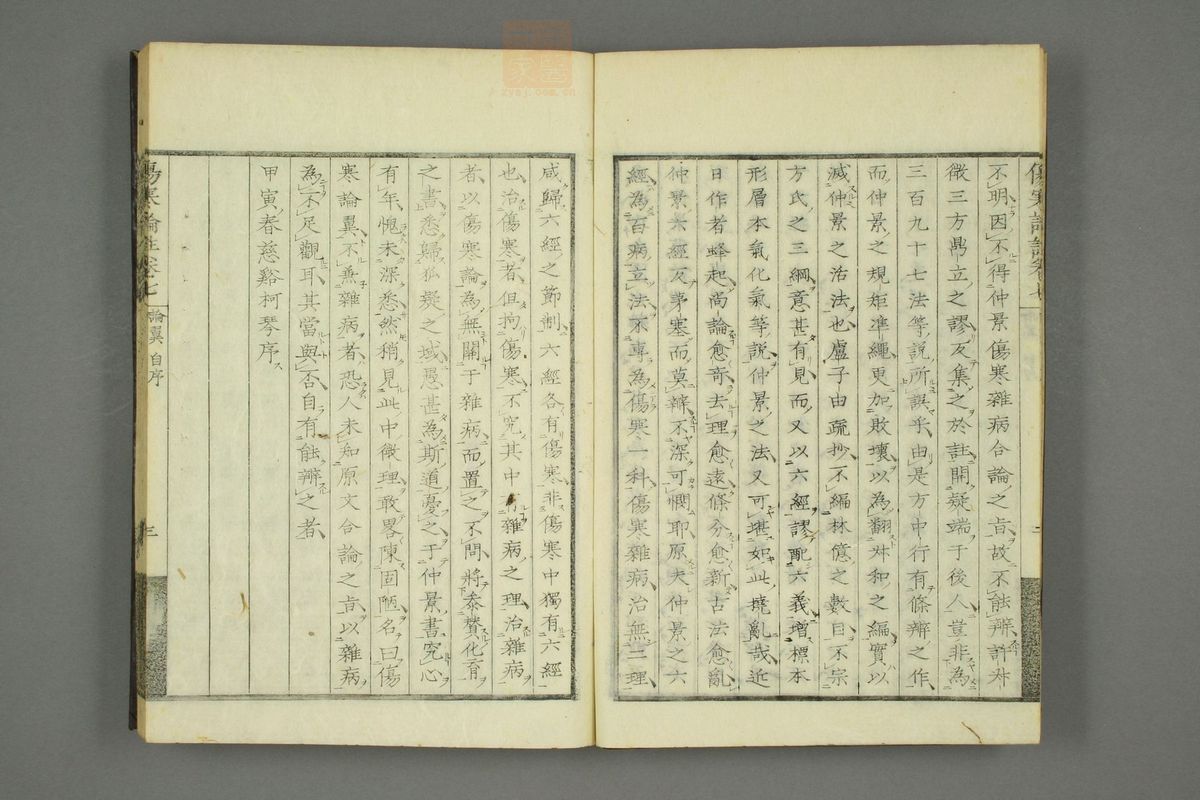 不明因不得仲景傷寒雜病合論之旨故不能辨許叔
微三方鼎立之謬反集之於註開疑端于後人豈非為
三百九十七法等說所誤乎由是方中行有條辨之作
而仲景之規矩準繩更加敗壞以為翻叔和之編實以
滅仲景之活法也盧子由疏抄不編林億之數目不宗
方氏之三綱意甚有見而又以六經謬配六義增標本
形層本氣化氣等說仲景之法又可堪如此撓亂哉近
日作者蜂起尚論愈奇去理愈遠條分愈新古法愈亂
仲景六經反茅塞而莫辨不深可憫耶原夫仲景之六
經為百病立法不專為傷寒一科傷寒雜病治無二理
咸歸六經之節制六經各有傷寒非傷寒中獨有六經
也治傷寒者但拘傷寒不究其中有雜病之理治雜病
者以傷寒論為無關于雜病而置之不問將參贊化育
之書悉歸狐疑之域愚甚為斯道憂之于仲景書究心
有年愧未深悉然稍見此中微理敢畧陳固陋名曰傷
寒論翼不兼雜病者恐人未知原文合論之旨以雜病
為不足觀耳其當與否自有能辨之者
甲寅春慈谿柯琴序
傷寒論註卷七
論翼 自序
三